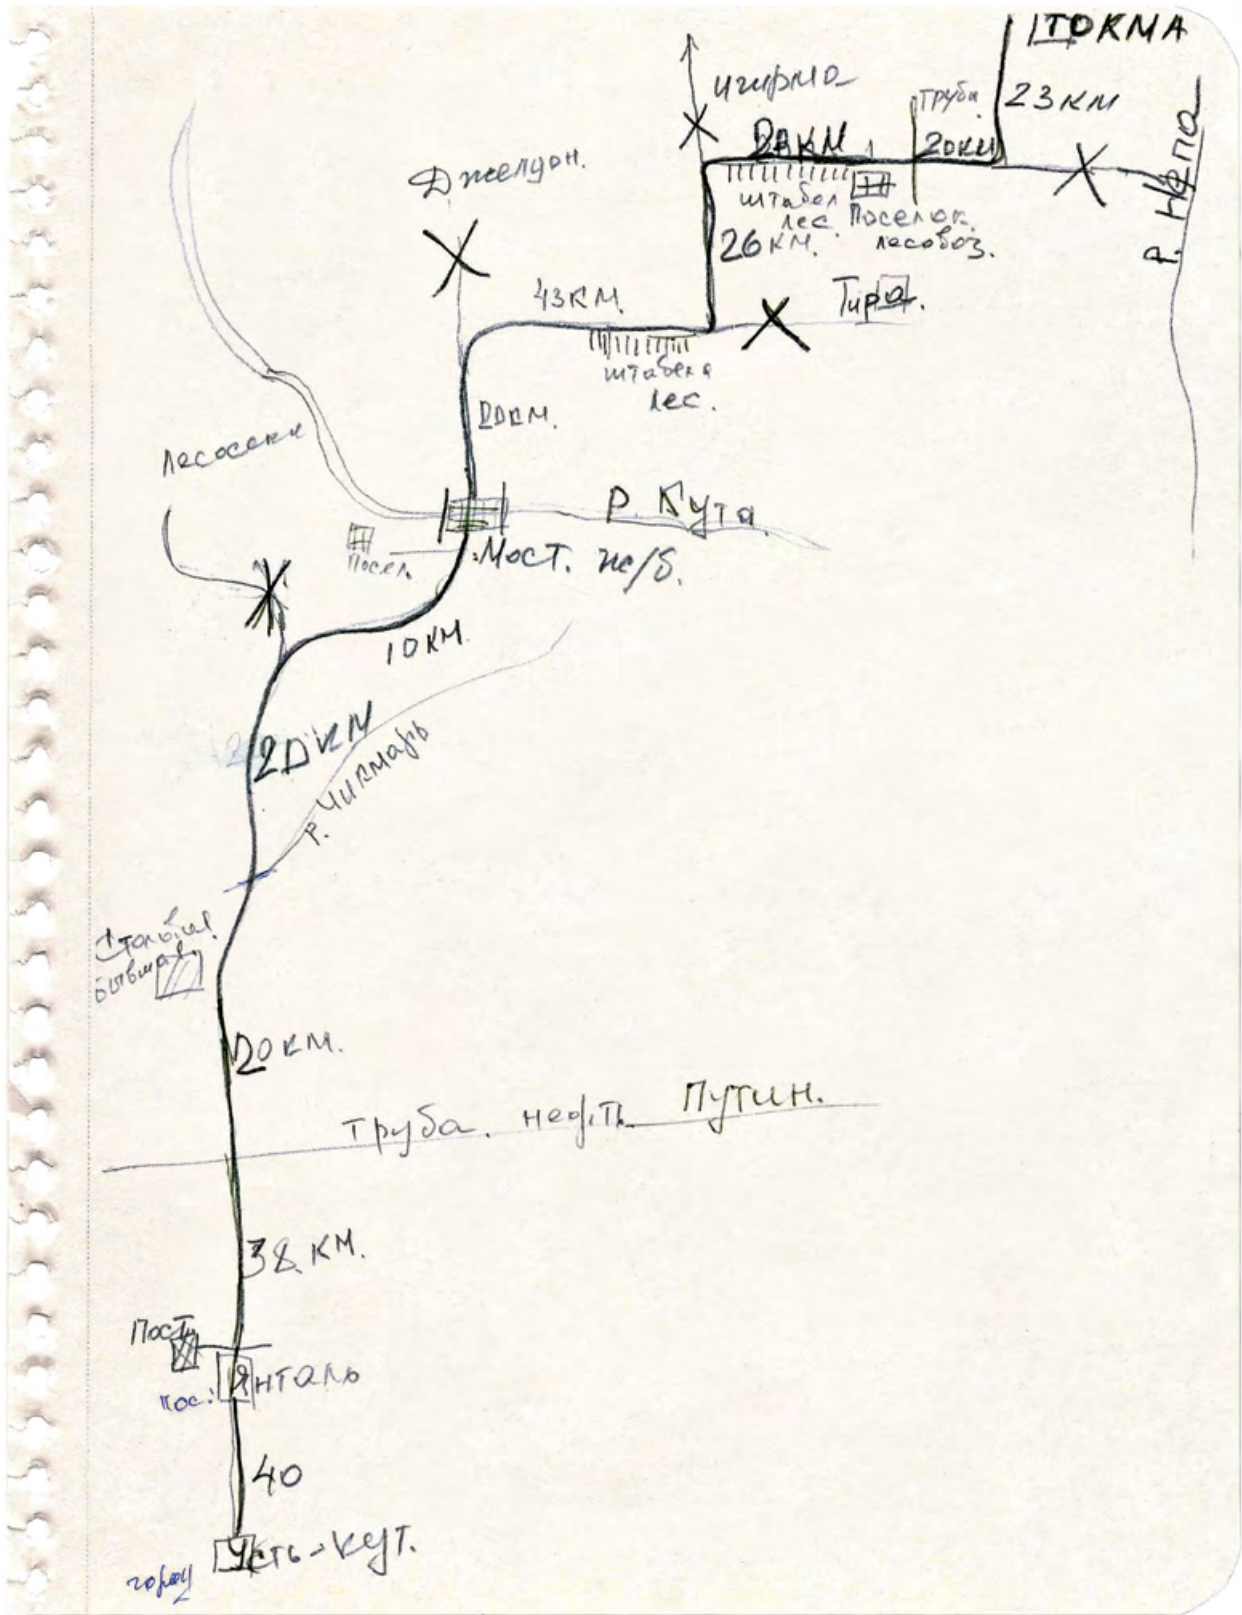 ТОКМА
игирма
труба
23 км
20км
р. Непа
Джелдон.
штабел
лес.
Поселок.
лесовоз.
26 км.
43км.
Тира.
штабеля
лес.
20км.
Лесосека
Р. Кута
Посел.
Мост. ж/б.
10 км.
20 км
р. Чикмарь
бывшая.
20 км.
труба. нефть Путин.
38 км.
Пост
пос:
Янталь
40
Усть-Кут.
город